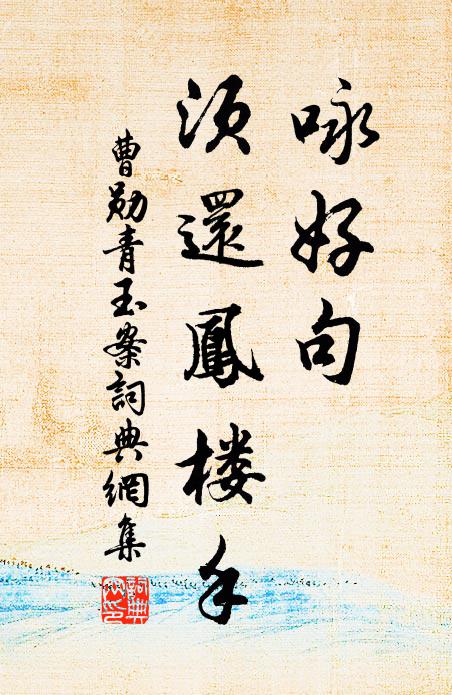 咏好句
须還鳳楼手
曹勋青玉案詞典網集
詞典